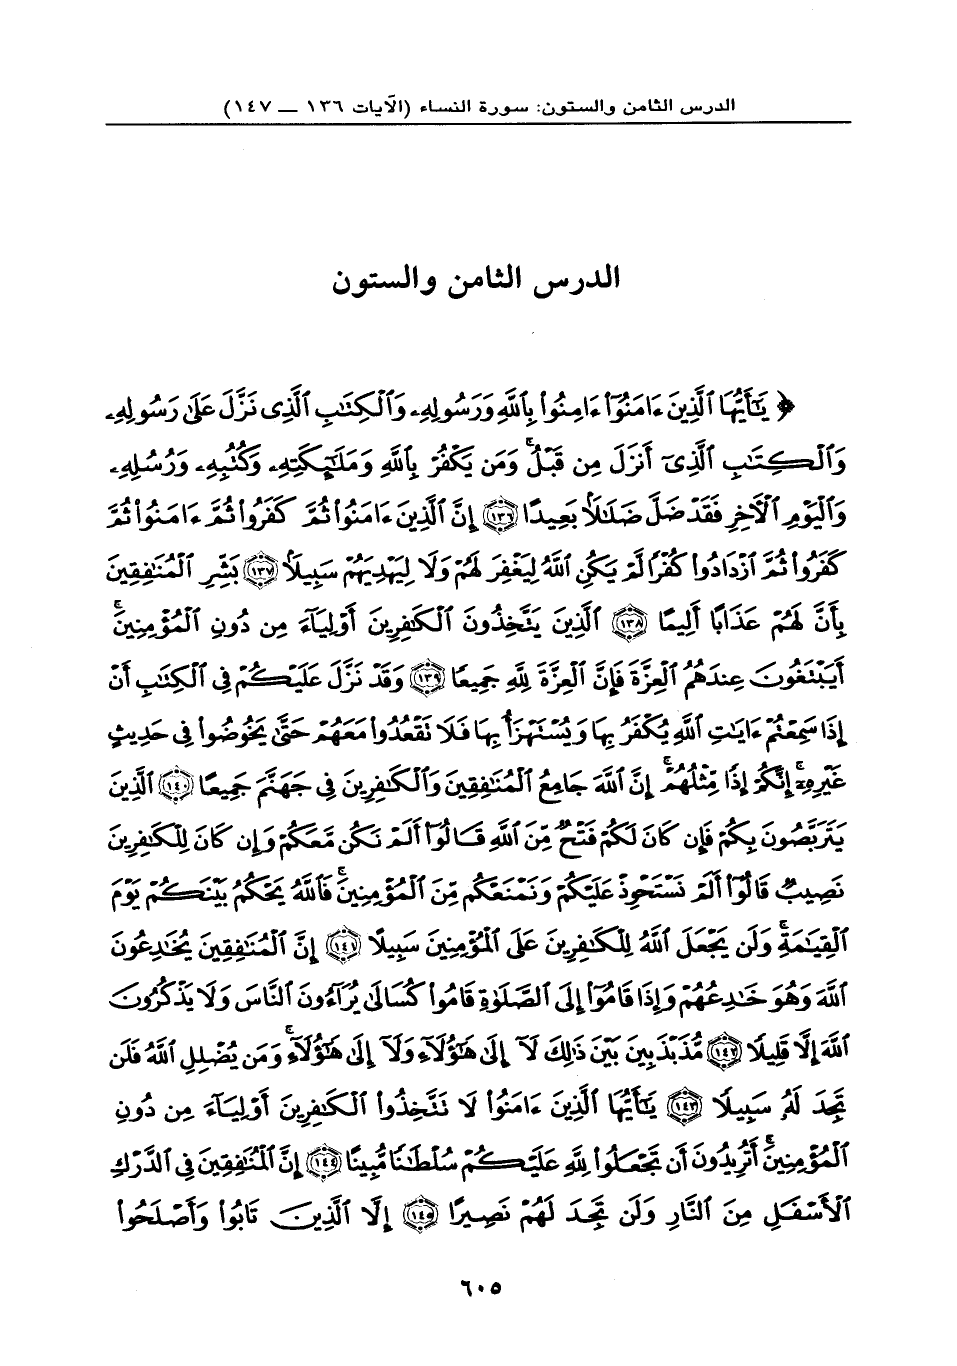 الدرس الثامن والستون: سورة النساء (الآيات ١٣٦ ــ ١٤٧)
الدرس الثامن والستون
﴿ يَٰٓأَيُّهَا ٱلَّذِينَ ءَامَنُوٓا۟ ءَامِنُوا۟ بِٱللَّهِ وَرَسُولِهِۦ وَٱلْكِتَٰبِ ٱلَّذِى نَزَّلَ عَلَىٰ رَسُولِهِۦ
وَٱلْكِتَٰبِ ٱلَّذِىٓ أَنزَلَ مِن قَبْلُ ۚ وَمَن يَكْفُرْ بِٱللَّهِ وَمَلَٰٓئِكَتِهِۦ وَكُتُبِهِۦ وَرُسُلِهِۦ
وَٱلْيَوْمِ ٱلْءَاخِرِ فَقَدْ ضَلَّ ضَلَٰلًۢا بَعِيدًا ١٣٦ إِنَّ ٱلَّذِينَ ءَامَنُوا۟ ثُمَّ كَفَرُوا۟ ثُمَّ ءَامَنُوا۟ ثُمَّ
كَفَرُوا۟ ثُمَّ ٱزْدَادُوا۟ كُفْرًا لَّمْ يَكُنِ ٱللَّهُ لِيَغْفِرَ لَهُمْ وَلَا لِيَهْدِيَهُمْ سَبِيلًۢا ١٣٧ بَشِّرِ ٱلْمُنَٰفِقِينَ
بِأَنَّ لَهُمْ عَذَابًا أَلِيمًا ١٣٨ ٱلَّذِينَ يَتَّخِذُونَ ٱلْكَٰفِرِينَ أَوْلِيَآءَ مِن دُونِ ٱلْمُؤْمِنِينَ ۚ
أَيَبْتَغُونَ عِندَهُمُ ٱلْعِزَّةَ فَإِنَّ ٱلْعِزَّةَ لِلَّهِ جَمِيعًا ١٣٩ وَقَدْ نَزَّلَ عَلَيْكُمْ فِى ٱلْكِتَٰبِ أَنْ
إِذَا سَمِعْتُمْ ءَايَٰتِ ٱللَّهِ يُكْفَرُ بِهَا وَيُسْتَهْزَأُ بِهَا فَلَا تَقْعُدُوا۟ مَعَهُمْ حَتَّىٰ يَخُوضُوا۟ فِى حَدِيثٍ
غَيْرِهِۦٓ ۚ إِنَّكُمْ إِذًا مِّثْلُهُمْ ۗ إِنَّ ٱللَّهَ جَامِعُ ٱلْمُنَٰفِقِينَ وَٱلْكَٰفِرِينَ فِى جَهَنَّمَ جَمِيعًا ١٤٠ ٱلَّذِينَ
يَتَرَبَّصُونَ بِكُمْ فَإِن كَانَ لَكُمْ فَتْحٌ مِّنَ ٱللَّهِ قَالُوٓا۟ أَلَمْ نَكُن مَّعَكُمْ وَإِن كَانَ لِلْكَٰفِرِينَ
نَصِيبٌ قَالُوٓا۟ أَلَمْ نَسْتَحْوِذْ عَلَيْكُمْ وَنَمْنَعْكُم مِّنَ ٱلْمُؤْمِنِينَ ۚ فَٱللَّهُ يَحْكُمُ بَيْنَكُمْ يَوْمَ
ٱلْقِيَٰمَةِ ۗ وَلَن يَجْعَلَ ٱللَّهُ لِلْكَٰفِرِينَ عَلَى ٱلْمُؤْمِنِينَ سَبِيلًا ١٤١ إِنَّ ٱلْمُنَٰفِقِينَ يُخَٰدِعُونَ
ٱللَّهَ وَهُوَ خَٰدِعُهُمْ وَإِذَا قَامُوٓا۟ إِلَى ٱلصَّلَوٰةِ قَامُوا۟ كُسَالَىٰ يُرَآءُونَ ٱلنَّاسَ وَلَا يَذْكُرُونَ
ٱللَّهَ إِلَّا قَلِيلًا ١٤٢ مُّذَبْذَبِينَ بَيْنَ ذَٰلِكَ لَآ إِلَىٰ هَٰٓؤُلَآءِ وَلَآ إِلَىٰ هَٰٓؤُلَآءِ ۚ وَمَن يُضْلِلِ ٱللَّهُ فَلَن
تَجِدَ لَهُۥ سَبِيلًا ١٤٣ يَٰٓأَيُّهَا ٱلَّذِينَ ءَامَنُوا۟ لَا تَتَّخِذُوا۟ ٱلْكَٰفِرِينَ أَوْلِيَآءَ مِن دُونِ
ٱلْمُؤْمِنِينَ ۚ أَتُرِيدُونَ أَن تَجْعَلُوا۟ لِلَّهِ عَلَيْكُمْ سُلْطَٰنًا مُّبِينًا ١٤٤ إِنَّ ٱلْمُنَٰفِقِينَ فِى ٱلدَّرْكِ
ٱلْأَسْفَلِ مِنَ ٱلنَّارِ وَلَن تَجِدَ لَهُمْ نَصِيرًا ١٤٥ إِلَّا ٱلَّذِينَ تَابُوا۟ وَأَصْلَحُوا۟
٦٠٥